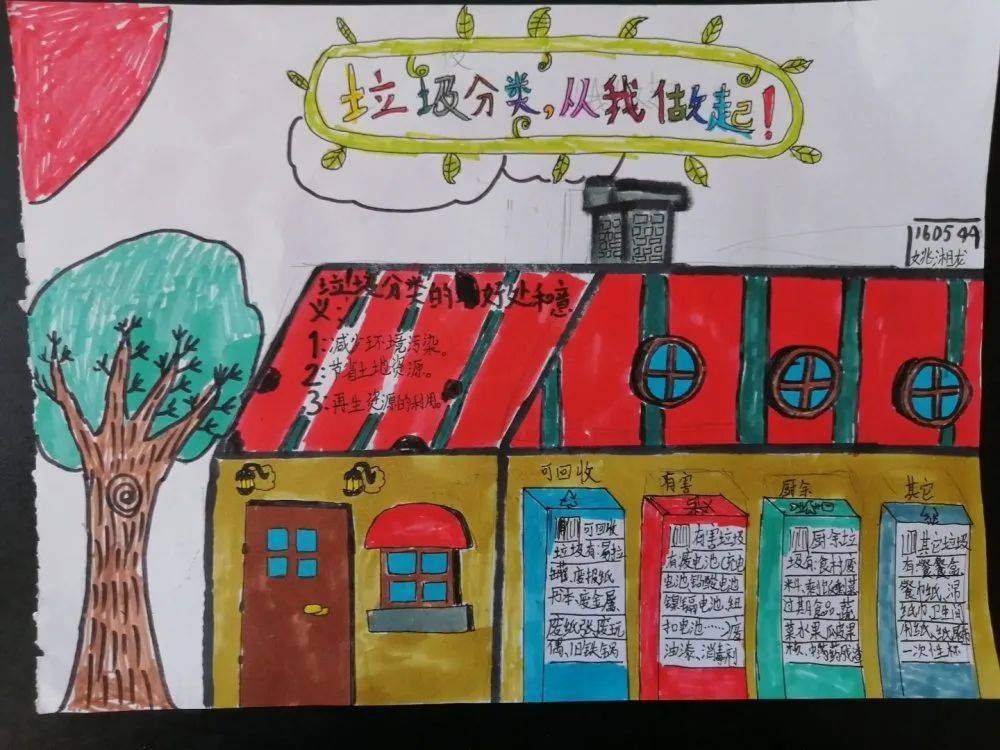 垃圾分类,从我做起!
160544
姚湘龙
垃圾分类的好处和意
义:
1:减少环境污染。
2:节省土地资源。
3:再生资源的利用。
可回收
有害
厨余
其它
可回收
垃圾有:易拉
罐,废报纸
书本、废金属、
废纸张、废玩
偶、旧铁锅
有害垃圾
有废电池(充电
电池、铅酸电池
镍镉电池、纽
扣电池……)废
油漆、消毒剂
厨余垃
圾有:食材废
料、剩饭剩菜
过期食品、蔬
菜水果、瓜皮果
核、中药药渣
其它垃圾
有餐盒、
餐巾纸、湿
纸巾卫生间
用纸、纸尿裤
一次性杯